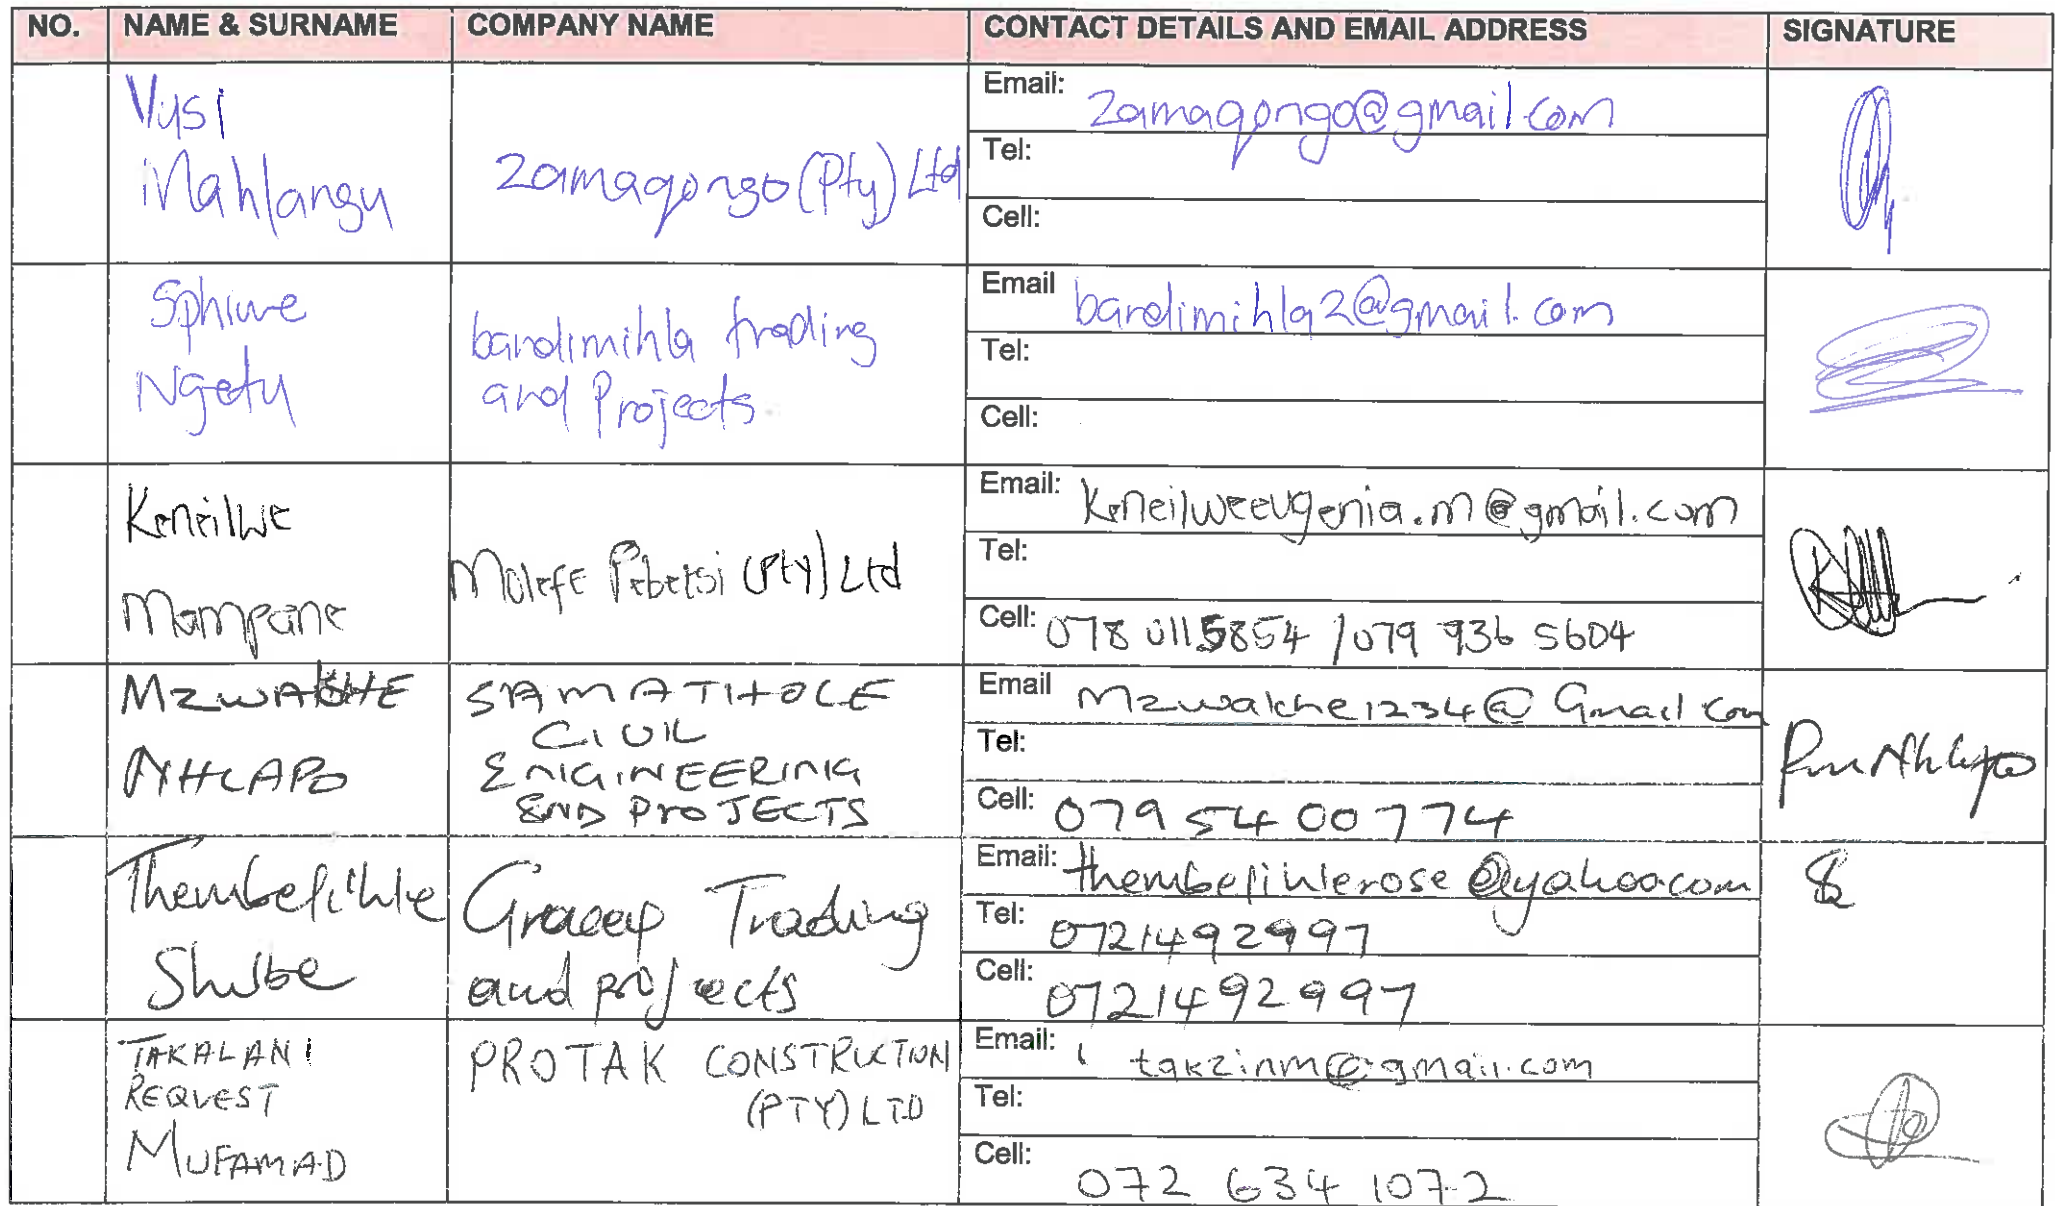 NO. NAME & SURNAME COMPANY NAME CONTACT DETAILS AND EMAIL ADDRESS SIGNATURE
Vusi
Mahlangu
Zamaqongo (Pty) Ltd
Email: Zamaqongo@gmail.com
Tel:
Cell:
Sphiwe
Ngetu
bandimihla trading
and Projects
Email bandimihla2@gmail.com
Tel:
Cell:
Keneilwe
Mampane
Molefe Pebetsi (Pty) Ltd
Email: Keneilweeugenia.m@gmail.com
Tel:
Cell: 078 0115854 / 079 936 5604
MZWAKHE
NHLAPO
SAMATIHOLE
CIVIL
ENGINEERING
END PROJECTS
Email Mzwakhe1234@Gmail.com
Tel:
Cell: 079 54 00 774
Thembelihle
Shube
Graceep Trading
and projects
Email: thembelihlerose@yahoo.com
Tel: 0721492997
Cell: 0721492997
TAKALANI
REQUEST
MUFAMAD
PROTAK CONSTRUCTION
(PTY) LTD
Email: takzinm@gmail.com
Tel:
Cell: 072 634 1072